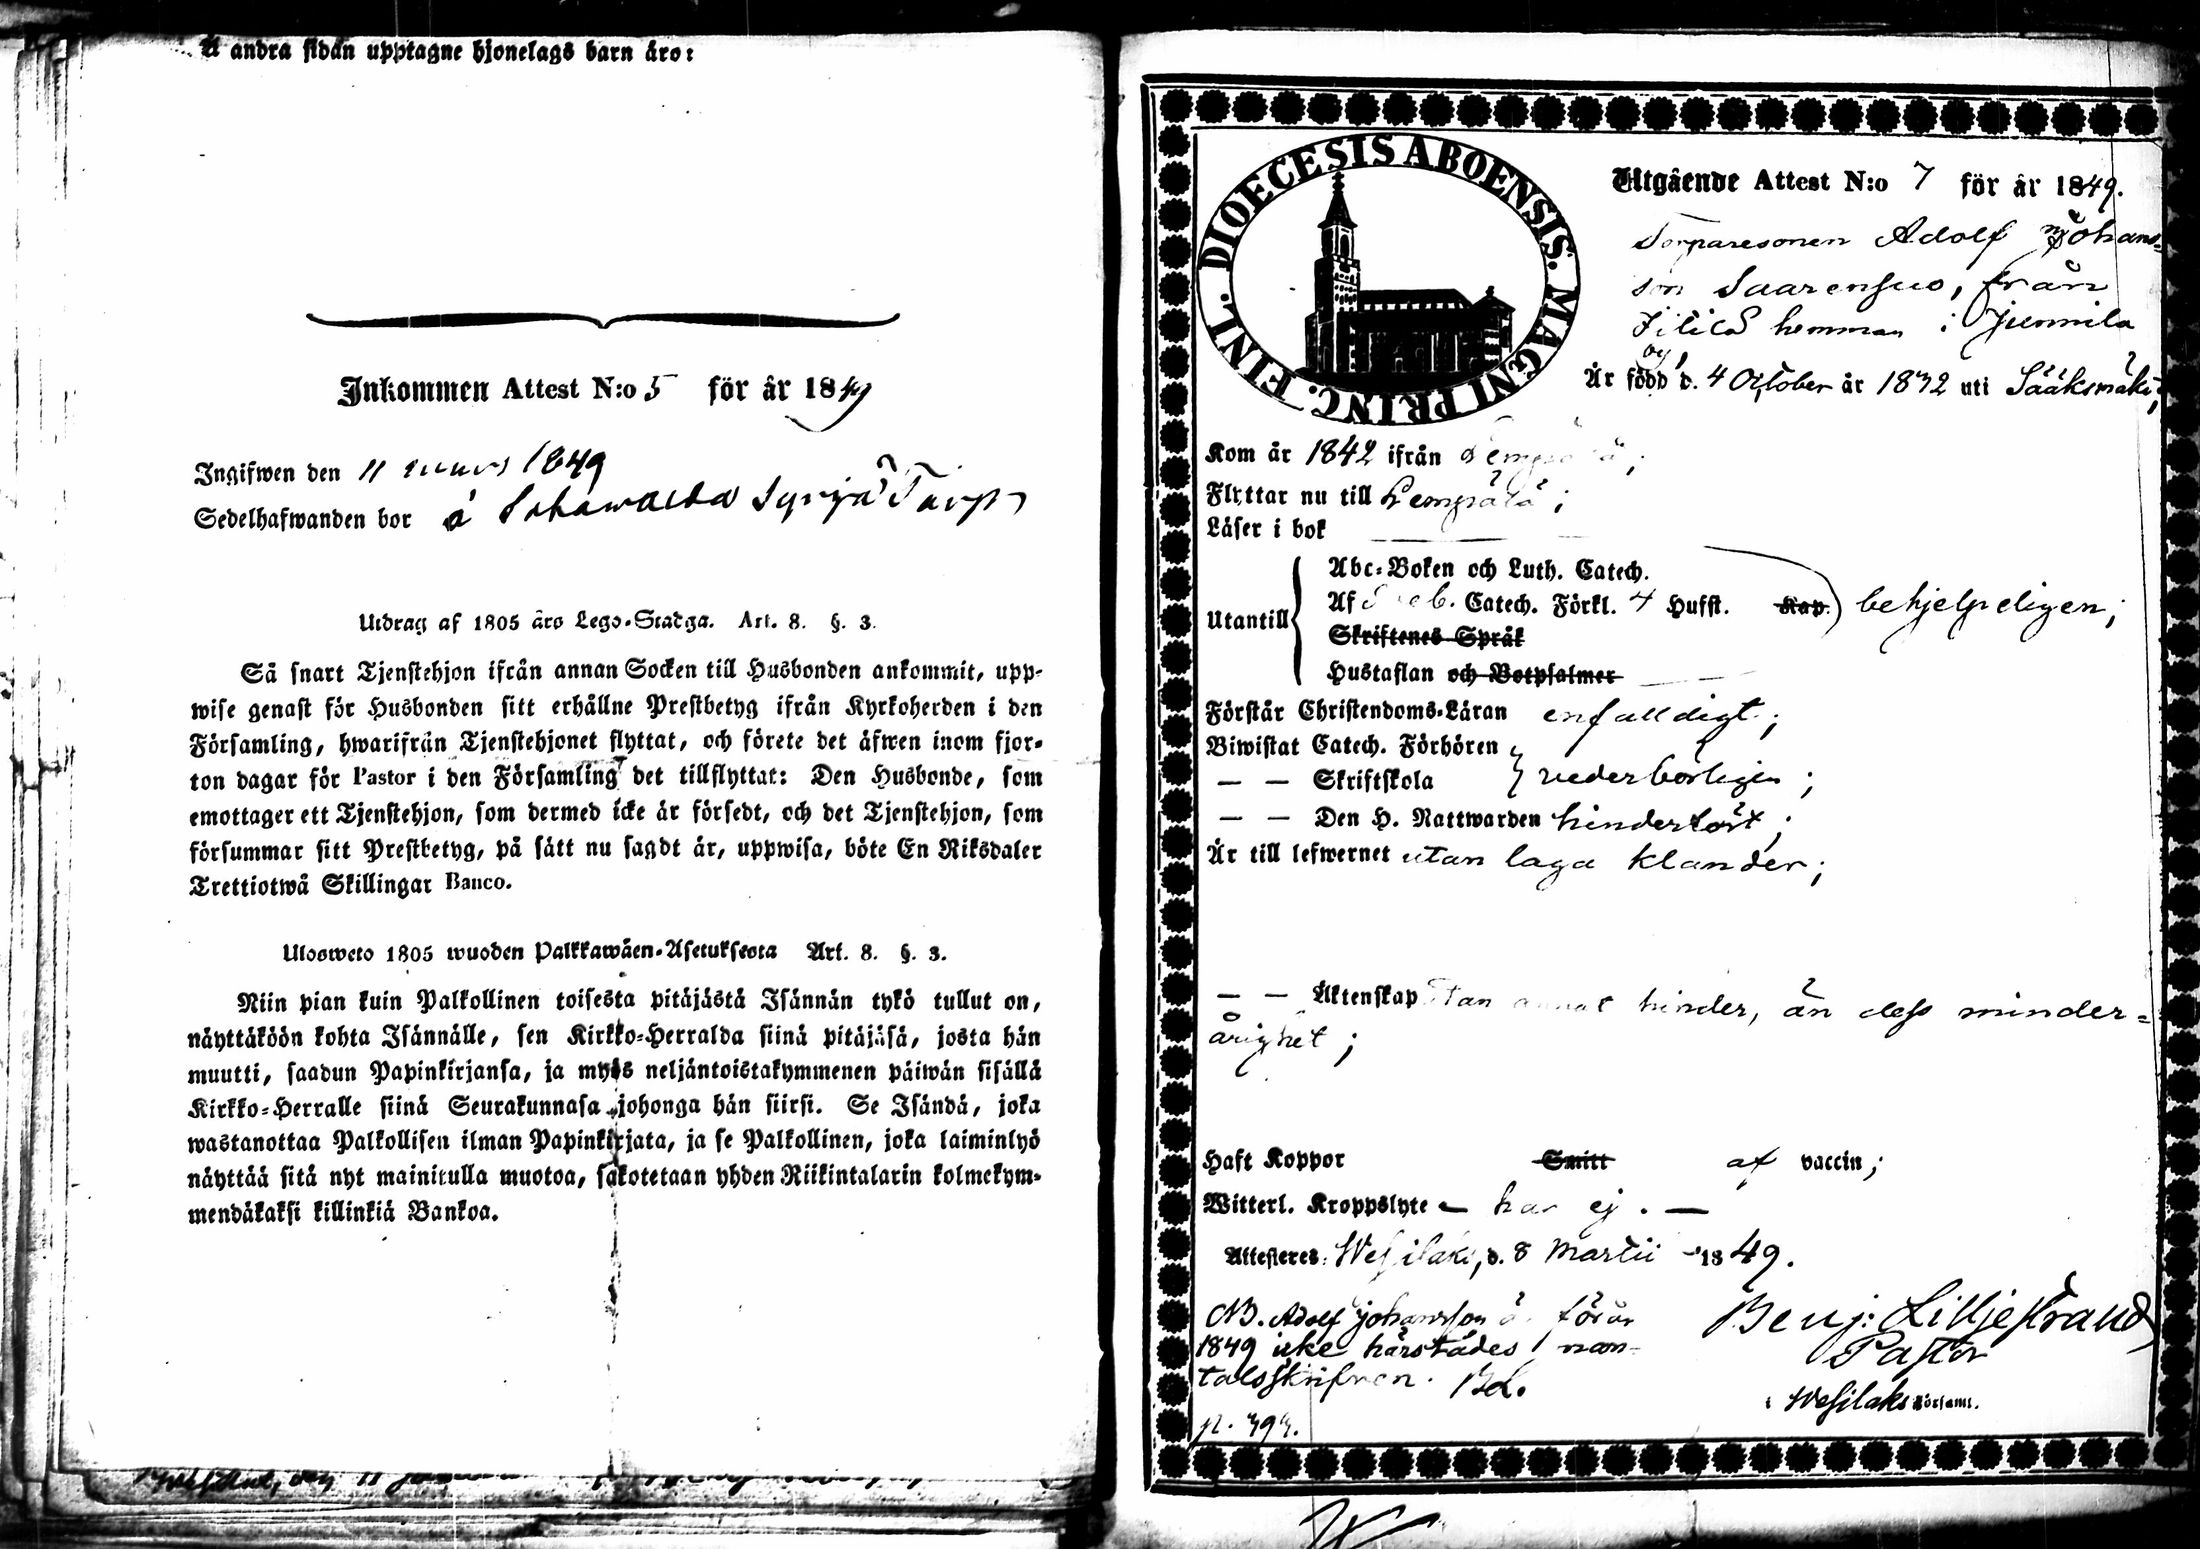 Å andra sidan upptagne hjonelags barn äro:
Inkommen Attest N:o 5 för år 1849
Ingifwen den 11 mars 1849
Sedelhafwanden bor å
Utdrag af 1805 års Lego-Stadga. Art. 8. §. 3.
Så snart Tjenstehjon ifrån annan Socken till Husbonden ankommit, upp-
wise genast för Husbonden sitt erhållne Prestbetyg ifrån Kyrkoherden i den
Församling, hwarifrån Tjenstehjonet flyttat, och förete det äfwen inom fjor-
ton dagar för Pastor i den Församling det tillflyttat: Den Husbonde, som
emottager ett Tjenstehjon, som dermed icke är försedt, och det Tjenstehjon, som
försummar sitt Prestbetyg, på sätt nu sagdt är, uppwisa, böte En Riksdaler
Trettiotwå Skillingar Banco.
Ulosweto 1805 wuoden Palkkawäen-Asetuksesta Art. 8. §. 3.
Niin pian kuin Palkollinen toisesta pitäjästä Isännän tykö tullut on,
näyttäköön kohta Isännälle, sen Kirkko-Herralda siinä pitäjäsä, josta hän
muutti, saadun Papinkirjansa, ja myös neljäntoistakymmenen päiwän sisällä
Kirkko-Herralle siinä Seurakunnasa johonga hän siirsi. Se Isändä, joka
wastanottaa Palkollisen ilman Papinkirjata, ja se Palkollinen, joka laiminlyö
näyttää sitä nyt mainitulla muotoa, sakotetaan yhden Riikintalarin kolmekym-
mendäkaksi killinkiä Bankoa.
DIOECESIS ABOENSIS. MAGNI PRINC. FINL.
Utgående Attest N:o 7 för år 1849.
Torparesonen Adolf Johans-
son Saarensuo, från
hemman i Jurmila
Är född d. 4 October år 1832 uti Sääksmäki;
Kom år 1842 ifrån Lempälä;
Flyttar nu till Lempälä;
Läser i bok
Utantill
Abc-Boken och Luth. Catech.
Af Sveb. Catech. Förkl. 4 Hufst. Kap. behjelpeligen;
Skriftenes Språk
Hustaflan och Botpsalmer
Förstår Christendoms-Läran enfalldigt;
Biwistat Catech. Förhören
— — Skriftskola vederbörligen;
— — Den H. Nattwarden hinderlöst;
Är till lefwernet utan laga klander;
— — Äktenskap utan annat hinder, än dess minder-
årighet;
Haft Koppor Smitt af vaccin;
Witterl. Kroppslyte — har ej. —
Attesteres, Wesilaks, d. 8 Martii 1849.
NB. Adolf Johansson är för år
1849 icke härstädes man-
talsskrifven. BL.
p. 393.
Benj: Lilljestrand
Pastor
i Wesilaks Församl.